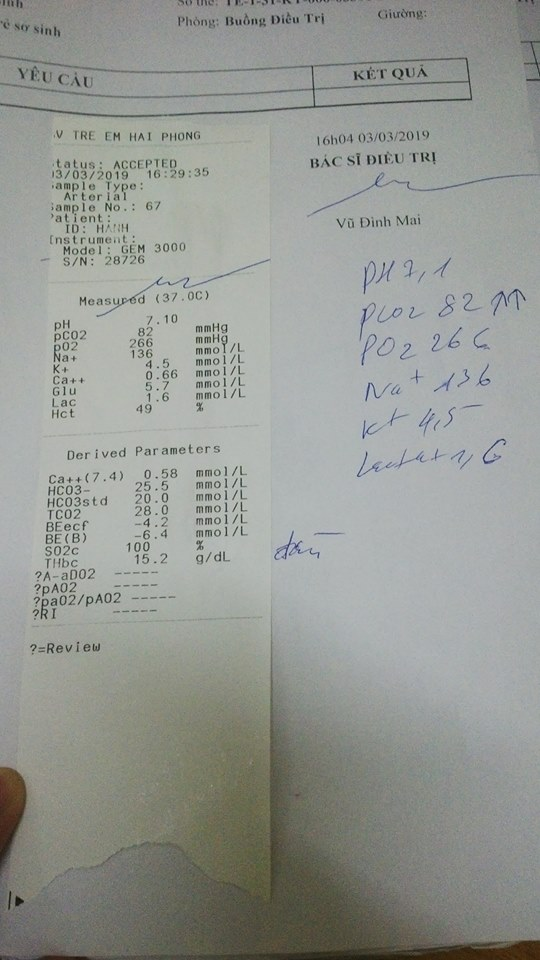 Số thẻ:
rẻ sơ sinh
Phòng: Buồng Điều Trị
Giường:
YÊU CẦU
KẾT QUẢ
V TRE EM HAI PHONG
tatus: ACCEPTED
3/03/2019 16:29:35
ample Type:
Arterial
ample No.: 67
atient:
ID: HANH
Instrument:
Model: GEM 3000
S/N: 28726
Measured (37.0C)
pH 7.10
pCO2 82 mmHg
pO2 266 mmHg
Na+ 136 mmol/L
K+ 4.5 mmol/L
Ca++ 0.66 mmol/L
Glu 5.7 mmol/L
Lac 1.6 mmol/L
Hct 49 %
Derived Parameters
Ca++(7.4) 0.58 mmol/L
HCO3- 25.5 mmol/L
HCO3std 20.0 mmol/L
TCO2 28.0 mmol/L
BEecf -4.2 mmol/L
BE(B) -6.4 mmol/L
SO2c 100 %
THbc 15.2 g/dL
?A-aDO2 -----
?pAO2 -----
?paO2/pAO2 -----
?RI -----
?=Review
16h04 03/03/2019
BÁC SĨ ĐIỀU TRỊ
Vũ Đình Mai
PH 7,1
pCO2 82 ↑↑
PO2 266
Na+ 136
K+ 4,5
Lactat 1,6